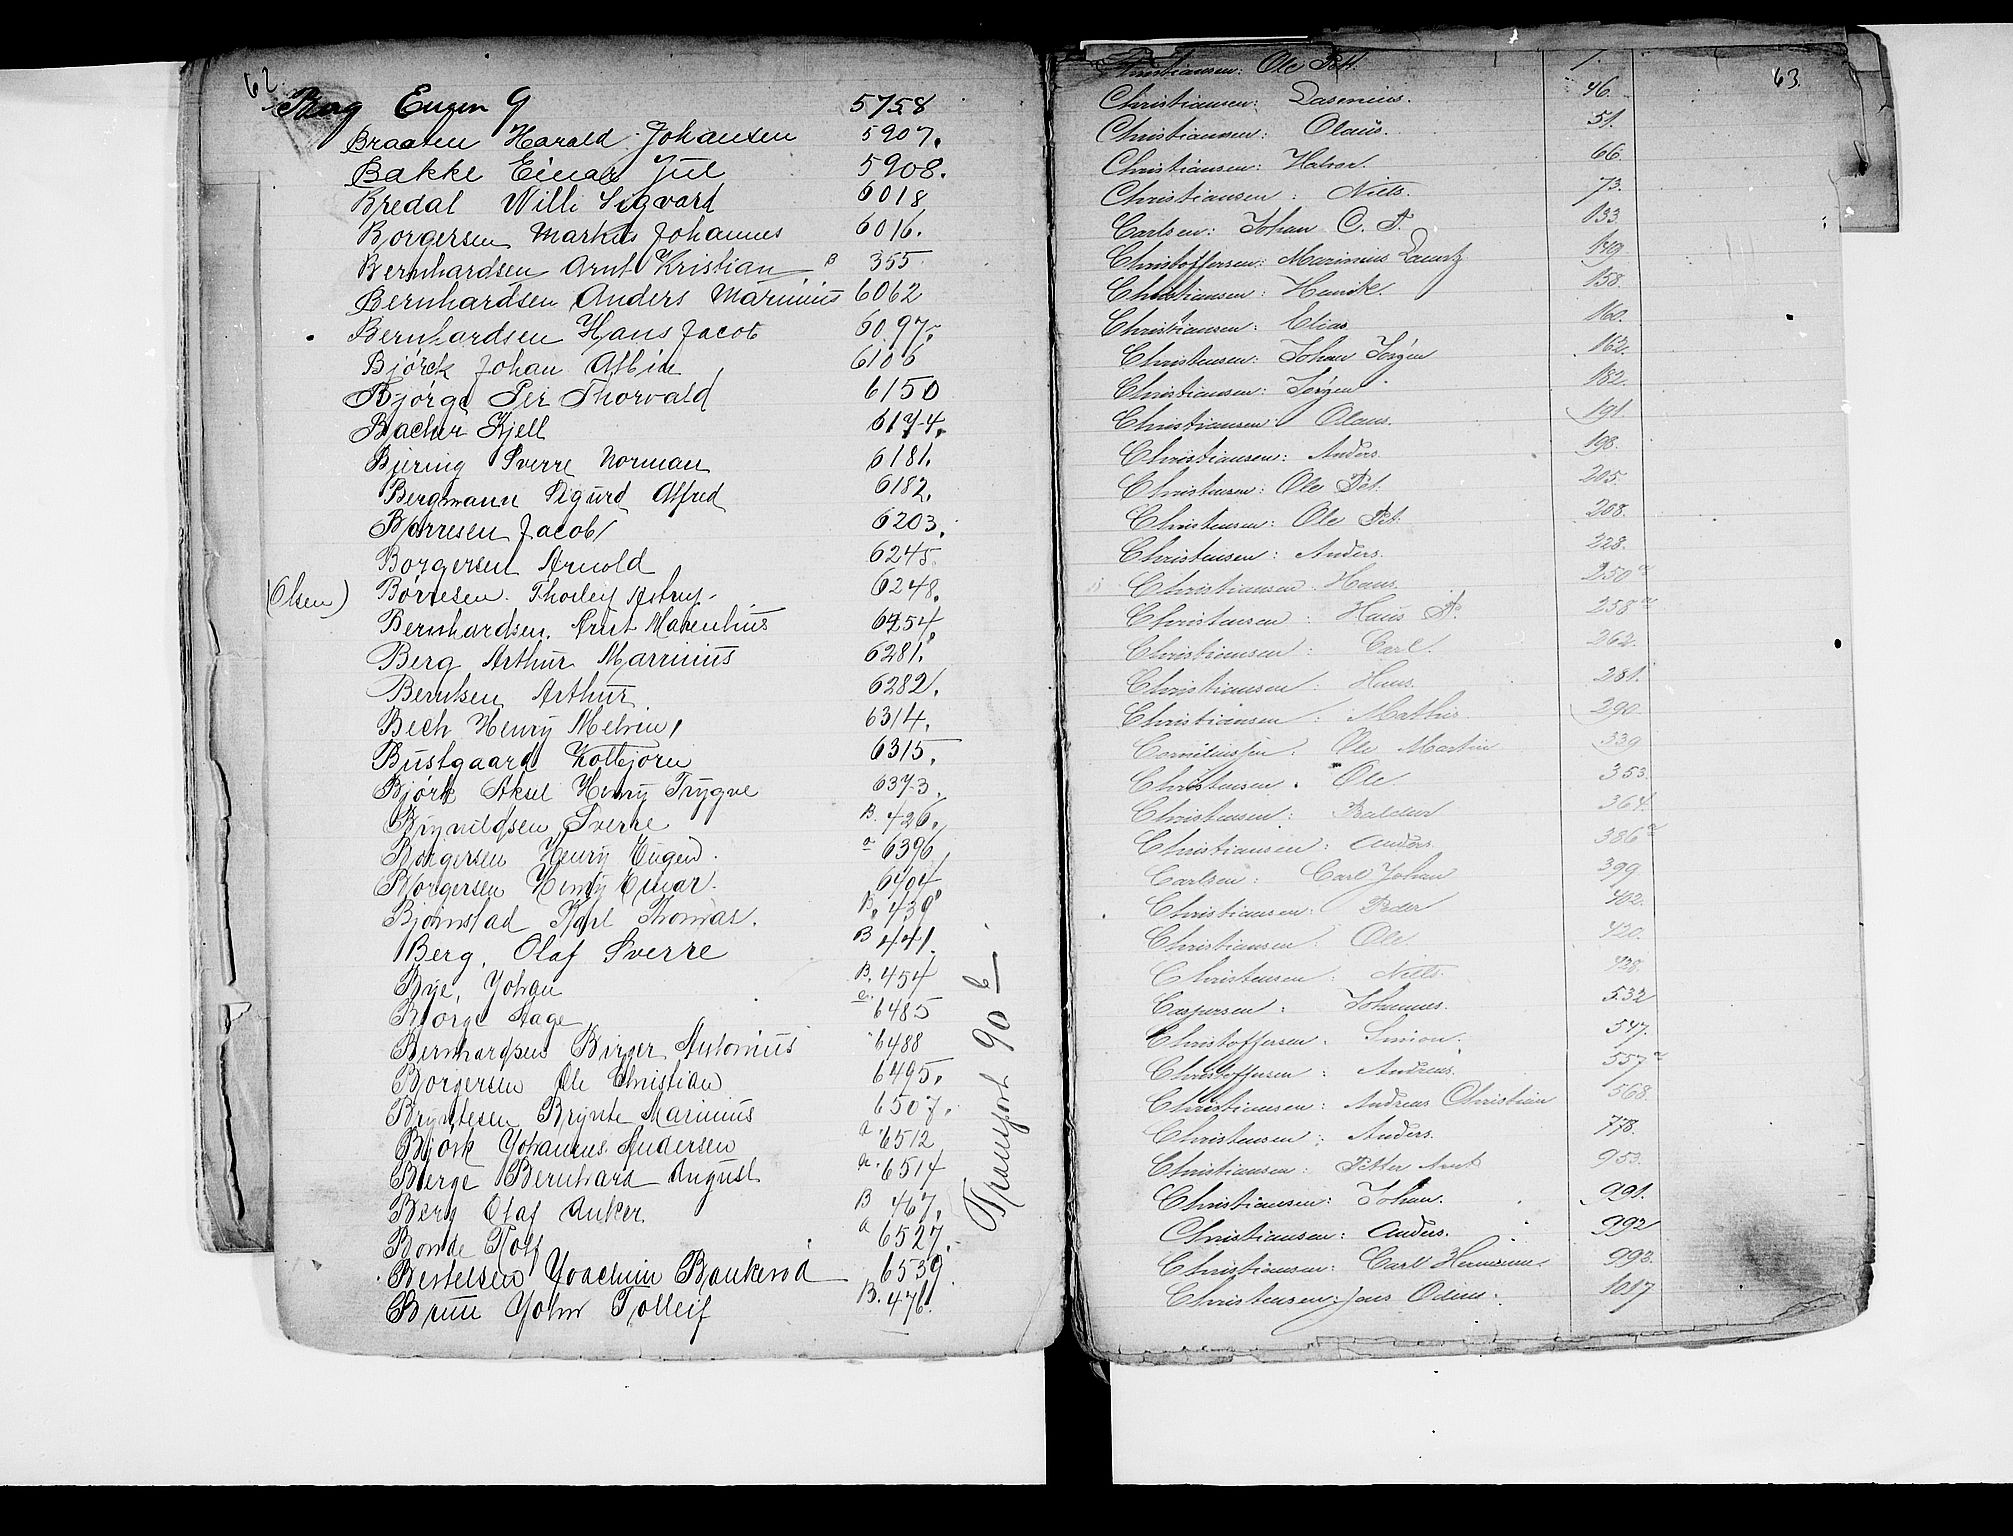 62
Berg Eugen G 5758
Braaten Harald Johansen 5907.
Bakke Einar Jul 5908.
Bredal Willi Sigvard 6018
Borgersen Markus Johannes 6016.
Bernhardsen Arnt Kristian B 355
Bernhardsen Anders Marinius 6062
Bernhardsen Hans Jacob 6097.
Bjørck Johan Albin 6106
Bjørge Per Thorvald 6150
Bacher Kjell 6174.
Bjering Sverre Norman 6181.
Bergmann Sigurd Alfred 6182.
Børresen Jacob 6203.
Borgersen Arnold 6245
(Olsen) Børresen Thorleif Astrup 6248.
Bernhardsen. Arnt Marenius 6254
Berg Arthur Marinius 6281.
Berntsen Arthur 6282.
Bech Henry Melvin 6314.
Bustgaard Kolbjørn 6315.
Bjørk Aksel Henry Trygve 6373.
Brynildsen Sverre B. 426.
Borgersen Henry Eugen. a 6396
Borgersen Henry Einar. 6404
Bjørnstad Karl Thomas. B. 439
Berg, Olaf Sverre B 441.
Bye, Johan B. 454
Bjørge Aage a. 6485
Bernhardsen Birger Antonius 6488
Borgersen Ole Christian 6495.
Bryntesen Brynte Marinius 6507.
Bjørk Johannes Andersen a 6512
Berge Bernhard August a. 6514
Berg Olaf Anker B 467.
Bonde Rolf a 6527.
Bertelsen Joachim Baukerød 6539
Bruu John Tolleif B. 476.
Transport 90 b
63.
Christiansen: Ole Pett. 1.
Christiansen: Lasenius. 46.
Christiansen: Olaus. 51.
Christiansen: Halvor. 66.
Christiansen: Niels. 73.
Carlsen: Johan C. P. 133.
Christoffersen: Marinius Lauritz 149.
Christiansen: Henrik. 158.
Christiansen: Elias. 160.
Christensen: Johan Jørgen 162.
Christensen: Jørgen 182.
Christiansen: Olaus. 191.
Christiansen: Anders. 198.
Christensen: Ole Pet. 205.
Christensen: Ole Pet. 208.
Christensen: Anders. 228.
Christiansen Hans. 250 a
Christensen: Hans P. 258 a
Christiansen: Carl. 262.
Christiansen: Hans. 281.
Christiansen: Mathis. 290.
Corneliussen: Ole Martin 339
Christensen. Ole 353.
Christensen: Baldur 364.
Christiansen: Anders. 386 a
Carlsen: Carl Johan 399
Christiansen: Peder 402.
Christiansen: Ole. 420.
Christensen: Niels. 428.
Caspersen: Johannes. 532
Christoffersen. Simon. 547.
Christoffersen: Andreas. 557 a
Christiansen: Andreas Christian 568.
Christensen: Anders. 778.
Christiansen: Petter Arnt 953.
Christiansen: Johan. 991.
Christiansen: Anders. 992
Christiansen: Carl Hermann 993.
Christensen: Jens Odin. 1017